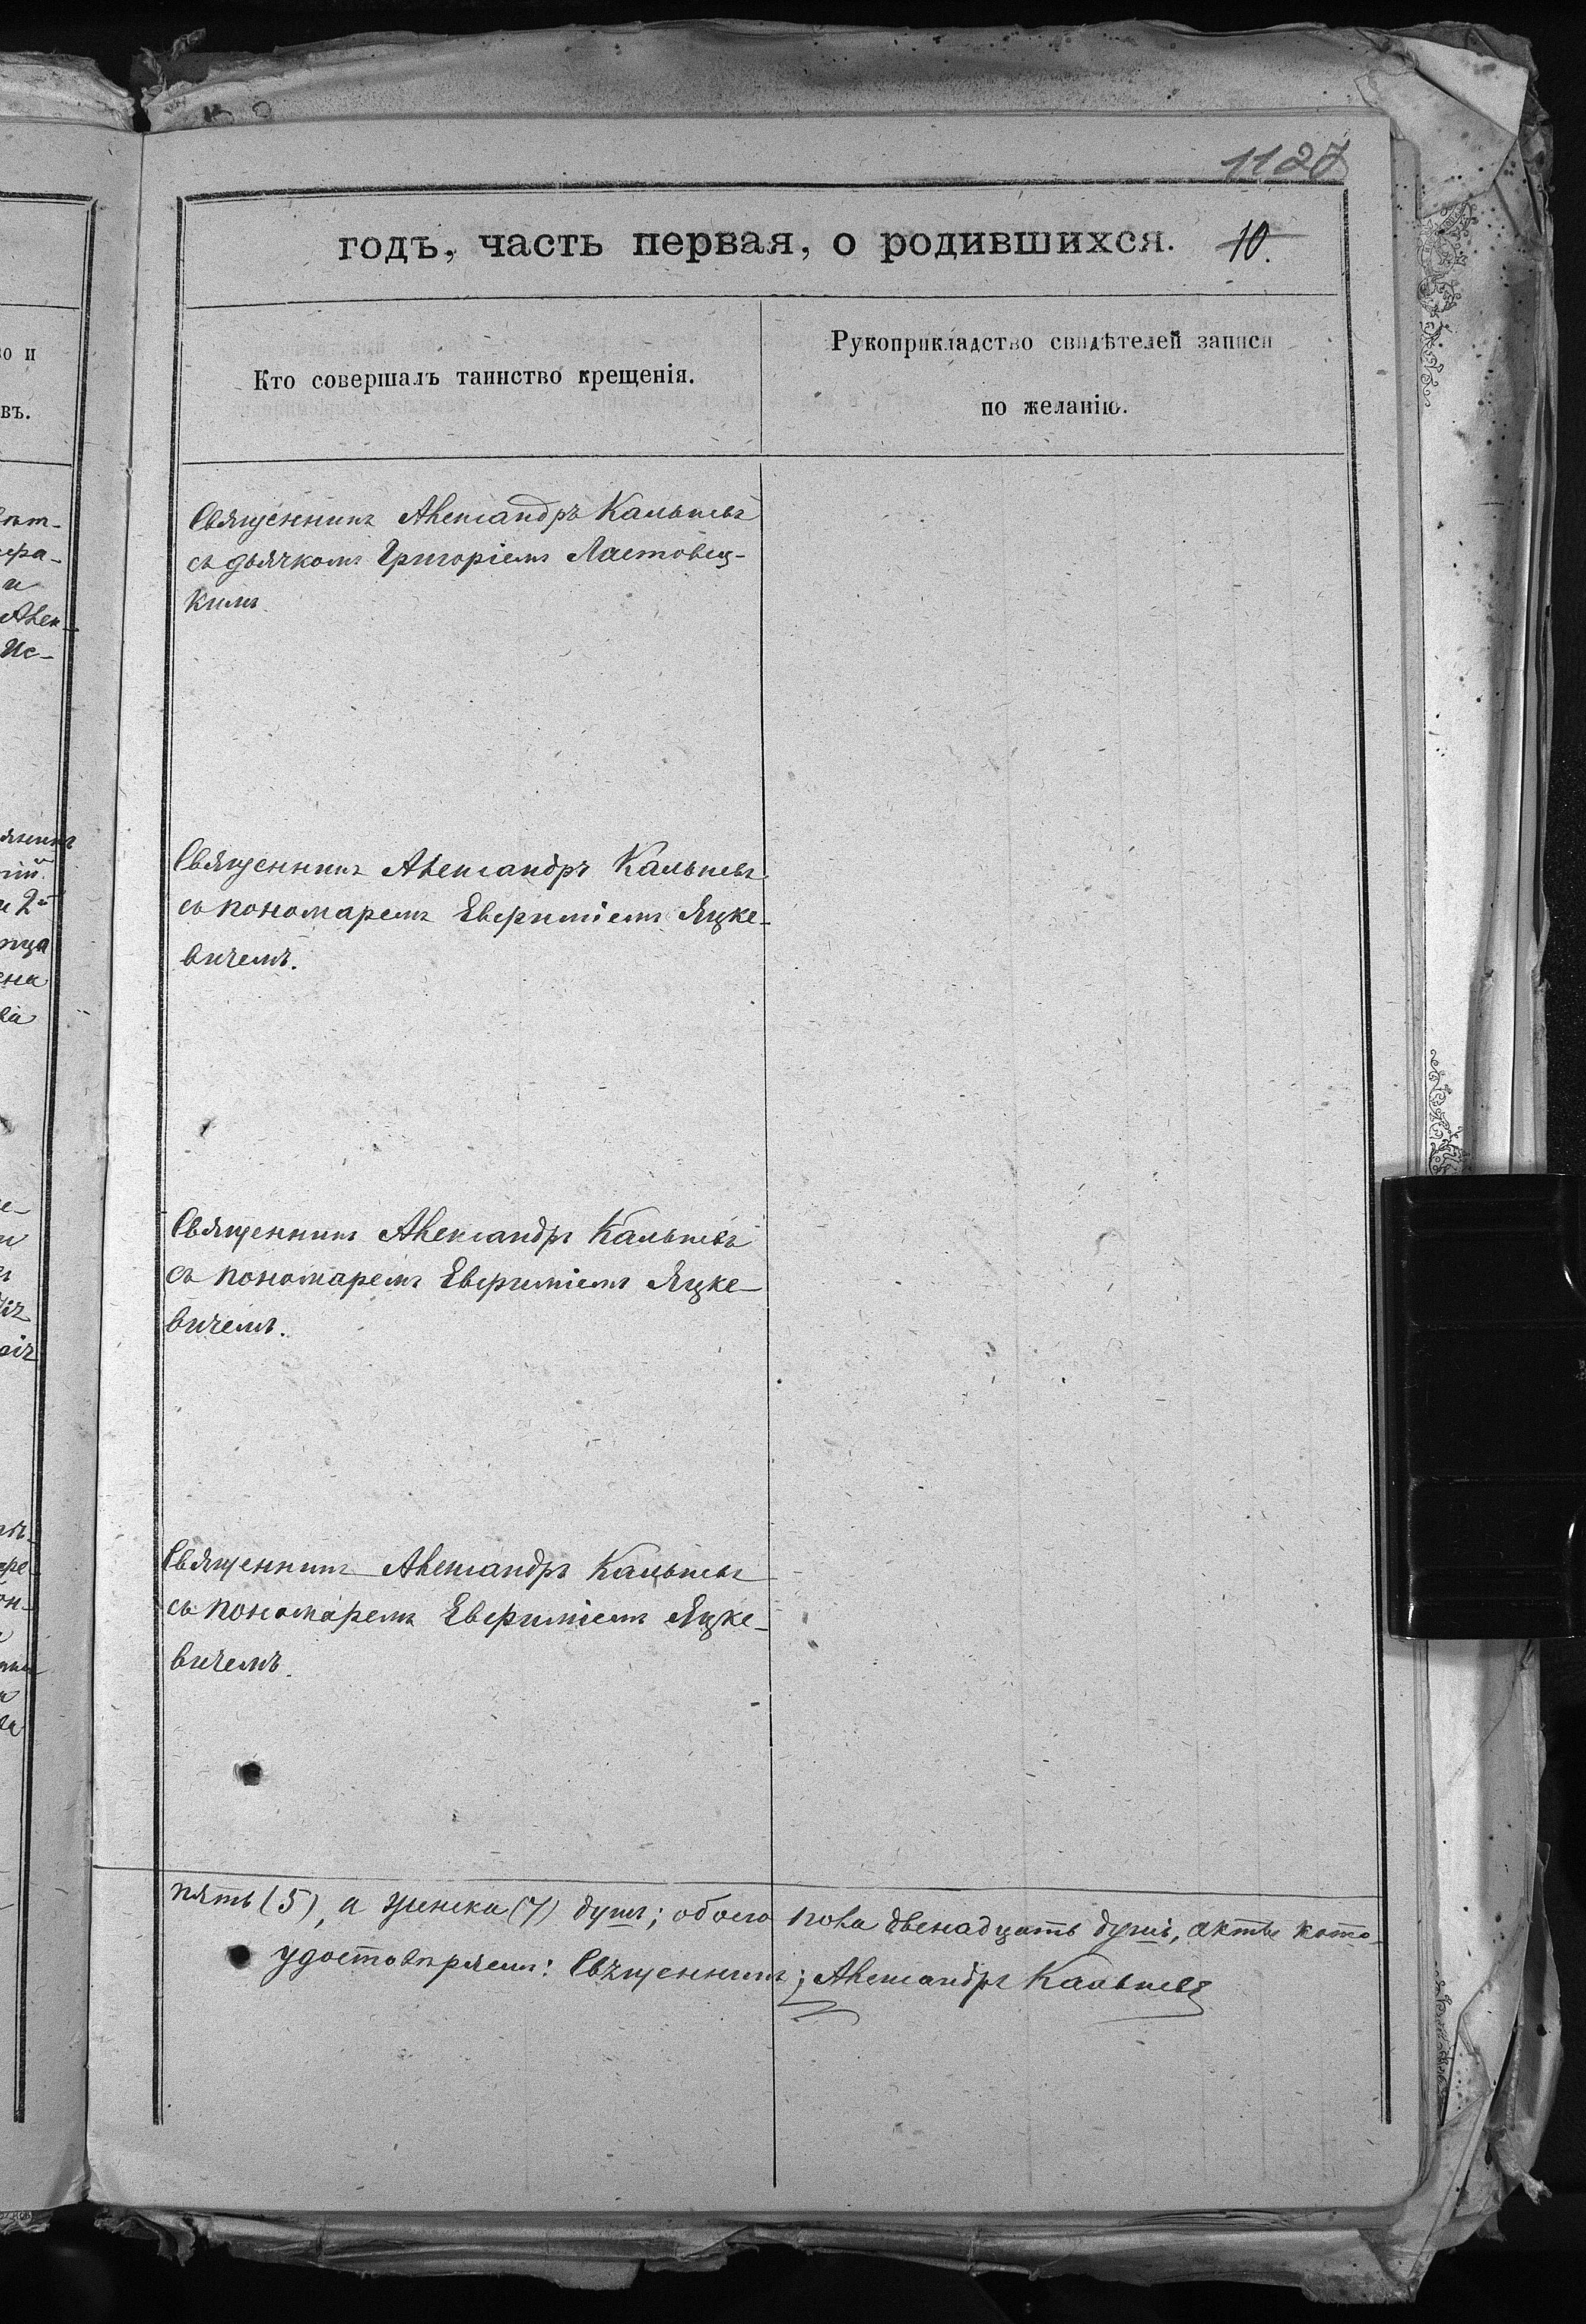 1127
годъ, часть первая, о родившихся. 10.
Кто совершалъ таинство крещенія.
Рукоприкладство свидѣтелей записи
по желанію.
Священникъ Александръ Кальневъ
съ дьячкомъ Григоріемъ Ластовец-
кимъ
Священникъ Александръ Кальневъ
съ пономаремъ Евфиміемъ Яцке-
вичемъ.
Священникъ Александръ Кальневъ
съ пономаремъ Евфиміемъ Яцке-
вичемъ.
Священникъ Александръ Кальневъ
съ пономаремъ Евфиміемъ Яцке-
вичемъ.
пять (5), а женска (7) душъ; обоего пола двенадцать душъ, акты кото-
удостовѣряемъ: Священникъ; Александръ Кальневъ